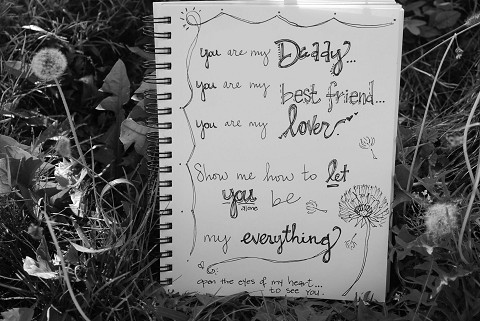 you are my Daddy?...
you are my best friend...
you are my lover?
Show me how to let
you be
alone
my everything?
open the eyes of my heart...
to see you.